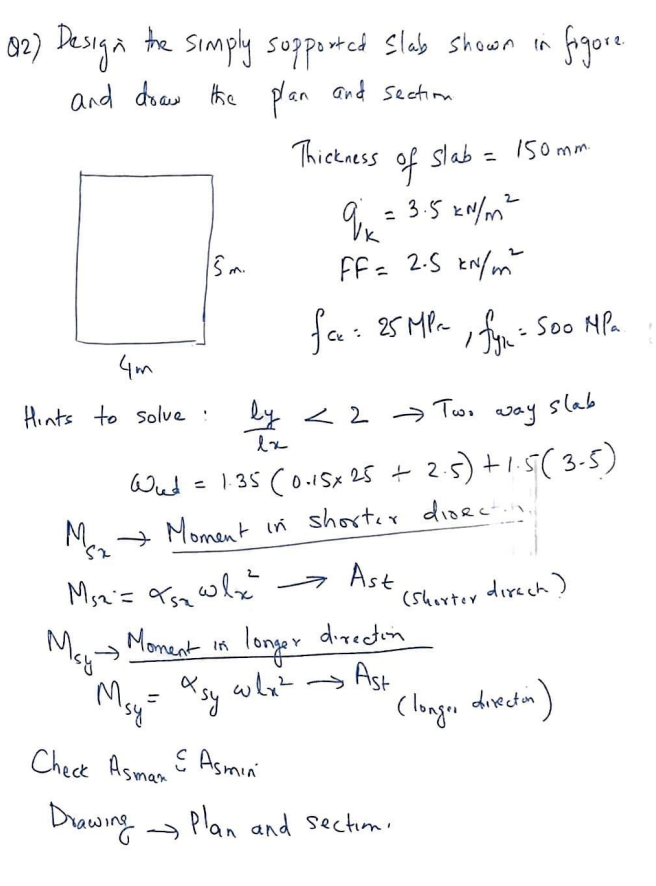 Q2) Design the simply supported slab shown in figure.
and draw the plan and section
Thickness of slab = 150 mm
qk = 3.5 kN/m²
5 m.
FF = 2.5 kN/m²
fck = 25 MPa, fyk = 500 MPa
4m
Hints to solve : ly/lx < 2 → Two way slab
Wud = 1.35 (0.15x25 + 2.5) + 1.5(3.5)
Msx → Moment in shorter direction
Msx = αsx wlx² → Ast (shorter direch)
Msy → Moment in longer direction
Msy = αsy wlx² → Ast (longer direction)
Check Asmax & Asmin
Drawing → Plan and section.